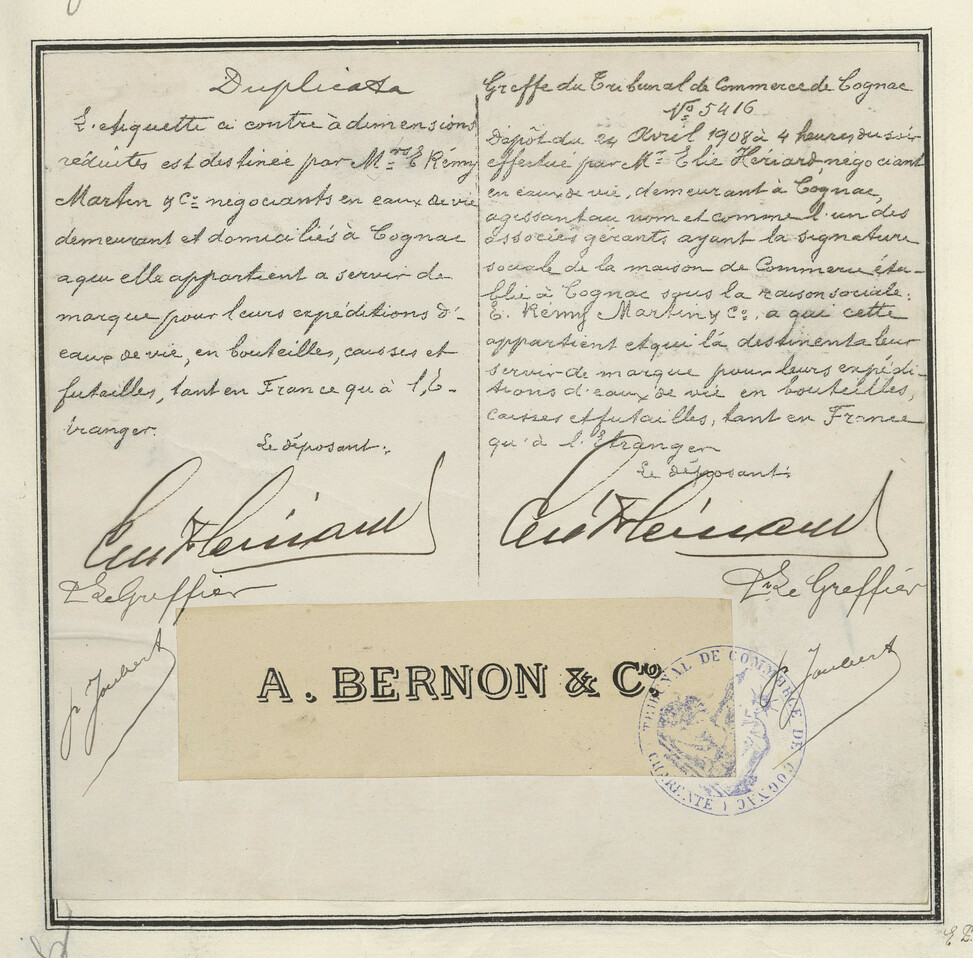 Duplicata
L'étiquette ci contre à dimensions
réduites est destinée par Mrs E Rémy
Martin & Co négociants en eaux de vie
demeurant et domiciliés à Cognac
a qui elle appartient a servir de
marque pour leurs expéditions d'-
eaux de vie, en bouteilles, caisses et
futailles, tant en France qu'à l'E-
tranger.
Le déposant:
Greffe du Tribunal de Commerce de Cognac
No 5416
Dépôt du 24 Avril 1908 à 4 heures du soir
effectué par Mr Elie Hériard, négociant
en eaux de vie, demeurant à Cognac,
agissant au nom et comme l'un des
associés gérants ayant la signature
sociale de la maison de Commerce éta-
blie à Cognac sous la raison sociale:
E. Rémy Martin & Co, a qui cette
appartient et qui la destinent a leur
servir de marque pour leurs expédi-
tions d'eaux de vie en bouteilles,
caisses et futailles, tant en France
qu'à l'Etranger
Le déposant:
Pr Le Greffier
Joubert
Pr Le Greffier
Joubert
A. BERNON & Co.
TRIBUNAL DE COMMERCE DE COGNAC
(CHARENTE)